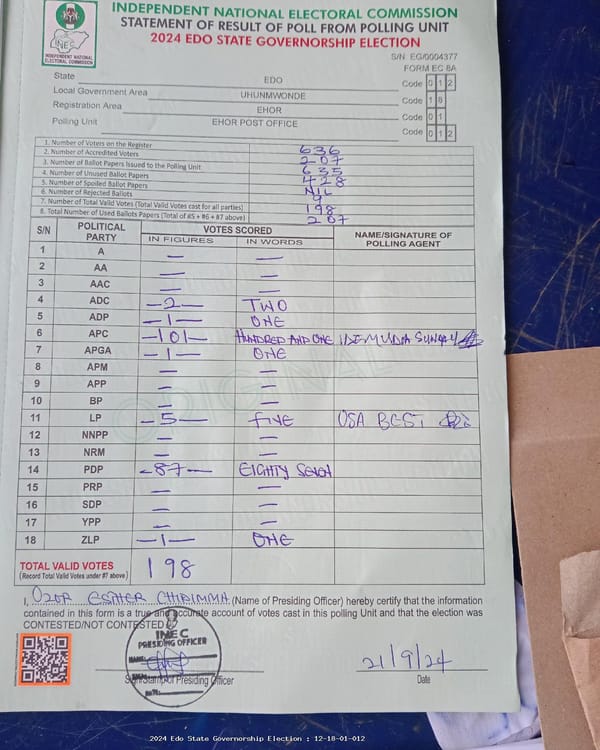 INDEPENDENT NATIONAL ELECTORAL COMMISSION
STATEMENT OF RESULT OF POLL FROM POLLING UNIT
2024 EDO STATE GOVERNORSHIP ELECTION
INEC
INDEPENDENT NATIONAL ELECTORAL COMMISSION
S/N EG/0004377
FORM EC 8A
State EDO Code 0 1 2
Local Government Area UHUNMWONDE Code 1 8
Registration Area EHOR Code 0 1
Polling Unit EHOR POST OFFICE Code 0 1 2
1. Number of Voters on the Register 636
2. Number of Accredited Voters 207
3. Number of Ballot Papers Issued to the Polling Unit 635
4. Number of Unused Ballot Papers 428
5. Number of Spoiled Ballot Papers NIL
6. Number of Rejected Ballots 9
7. Number of Total Valid Votes (Total Valid Votes cast for all parties) 198
8. Total Number of Used Ballots Papers (Total of #5 + #6 + #7 above) 207
S/N POLITICAL PARTY VOTES SCORED NAME/SIGNATURE OF POLLING AGENT
IN FIGURES IN WORDS
1 A — —
2 AA — —
3 AAC — —
4 ADC —2— TWO
5 ADP —1— ONE
6 APC —101— HUNDRED AND ONE IDEMUDIA SUNDAY
7 APGA —1— ONE
8 APM — —
9 APP — —
10 BP — —
11 LP —5— FIVE OSA BEST
12 NNPP — —
13 NRM — —
14 PDP —87— EIGHTY SEVEN
15 PRP — —
16 SDP — —
17 YPP — —
18 ZLP —1— ONE
ORIGINAL
TOTAL VALID VOTES 198
(Record Total Valid Votes under #7 above)
I, OZOR ESTHER CHIDIMMA (Name of Presiding Officer) hereby certify that the information
contained in this form is a true and accurate account of votes cast in this polling Unit and that the election was
CONTESTED/NOT CONTESTED
INEC
PRESIDING OFFICER
21/9/24
Sign/Stamp of Presiding Officer Date
2024 Edo State Governorship Election : 12-18-01-012